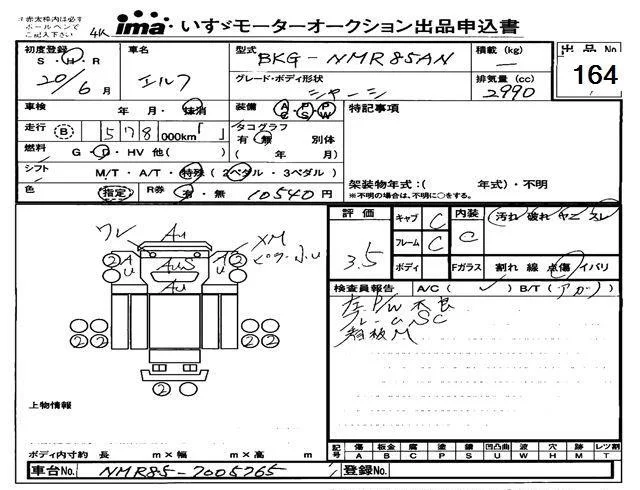 ※赤太枠内は必ず
ボールペンで
ご記入下さい
4K
ima いすゞモーターオークション出品申込書
初度登録 S・H・R 20/6月
車名 エルフ
型式 BKG-NMR85AN
グレード・ボディ形状 シャーシ
積載(kg) —
排気量(cc) 2990
出品No 164
車検 年・月・抹消
装備 AC・PS・PW
特記事項
走行 B 578,000km
タコグラフ 有・無 別体
( 年 月)
燃料 G・D・HV 他( )
シフト M/T・A/T・特殊(2ペダル・3ペダル)
架装物年式:( 年式)・不明
※不明の場合は、不明に○をする。
色 指定 R券 有・無 10540円
評価 3.5
キャブ C
フレーム C
ボディ
内装 C
Fガラス
汚れ 破れ ヤニ スレ
割れ 線 点傷 イバリ
検査員報告 A/C( ✓ ) B/T(アカ)
左P/W不良
フレームSC
ワレ
Au
XM
ピラー小U
2 A U
AuS
A U 2
Au
2 2
2 2
2
上物情報
ボディ内寸約 長 m×幅 m×高 m
記号 傷A 板金B 腐C 塗P 錆S 凹凸曲U 波W 穴H 跡M レツ割T
車台No. NMR85-7005765
登録No.